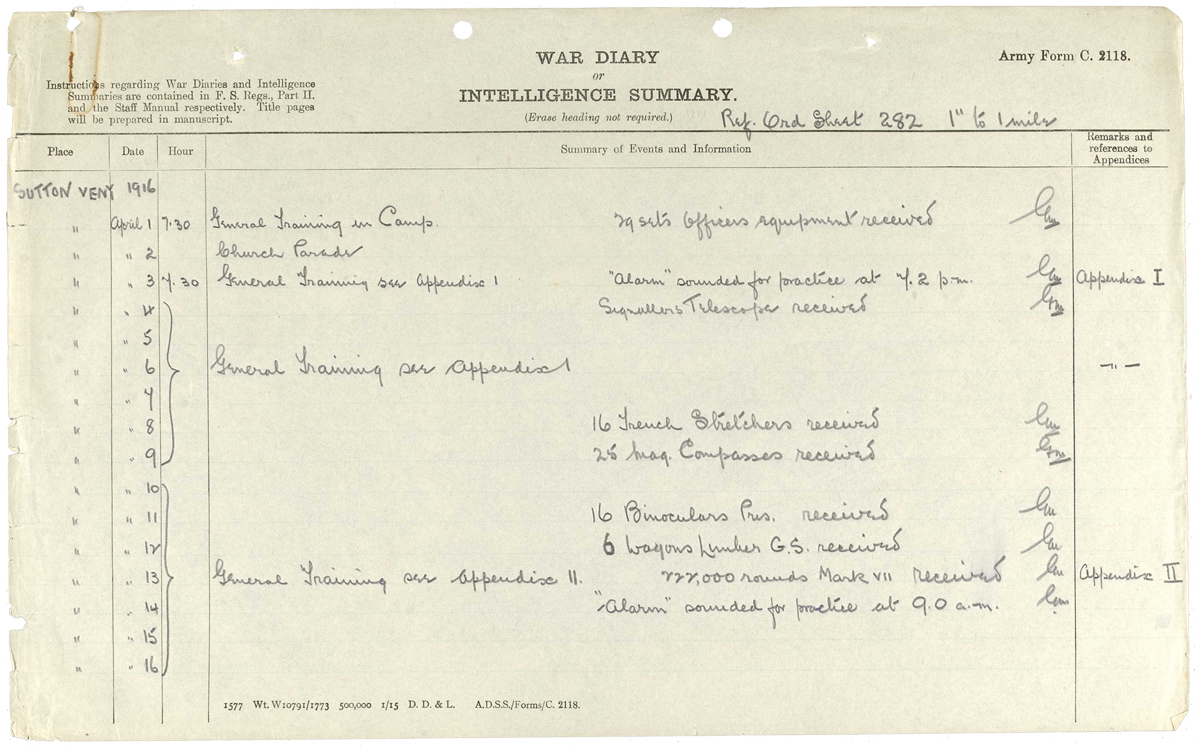 WAR DIARY
or
INTELLIGENCE SUMMARY.
(Erase heading not required.)
Army Form C. 2118.
Instructions regarding War Diaries and Intelligence
Summaries are contained in F. S. Regs., Part II.
and the Staff Manual respectively. Title pages
will be prepared in manuscript.
Ref. Ord Sheet 282 1" to 1 mile
Place Date Hour Summary of Events and Information Remarks and references to Appendices
SUTTON VENY 1916
" April 1 7.30 General Training in Camp. 29 sets Officers equipment received
" " 2 Church Parade
" " 3 7.30 General Training see Appendix 1 "Alarm" sounded for practice at 7.2 p.m. Appendix I
" " 4 Signallers Telescope received
" " 5
" " 6 General Training see Appendix 1 — " —
" " 7
" " 8 16 Trench Stretchers received
" " 9 25 Mag. Compasses received
" " 10
" " 11 16 Binoculars Pris. received
" " 12 6 Wagons Limber G.S. received
" " 13 General Training see Appendix II. 222,000 rounds Mark VII received Appendix II
" " 14 "Alarm" sounded for practice at 9.0 a.m.
" " 15
" " 16
1577 Wt. W10791/1773 500,000 1/15 D. D. & L. A.D.S.S./Forms/C. 2118.